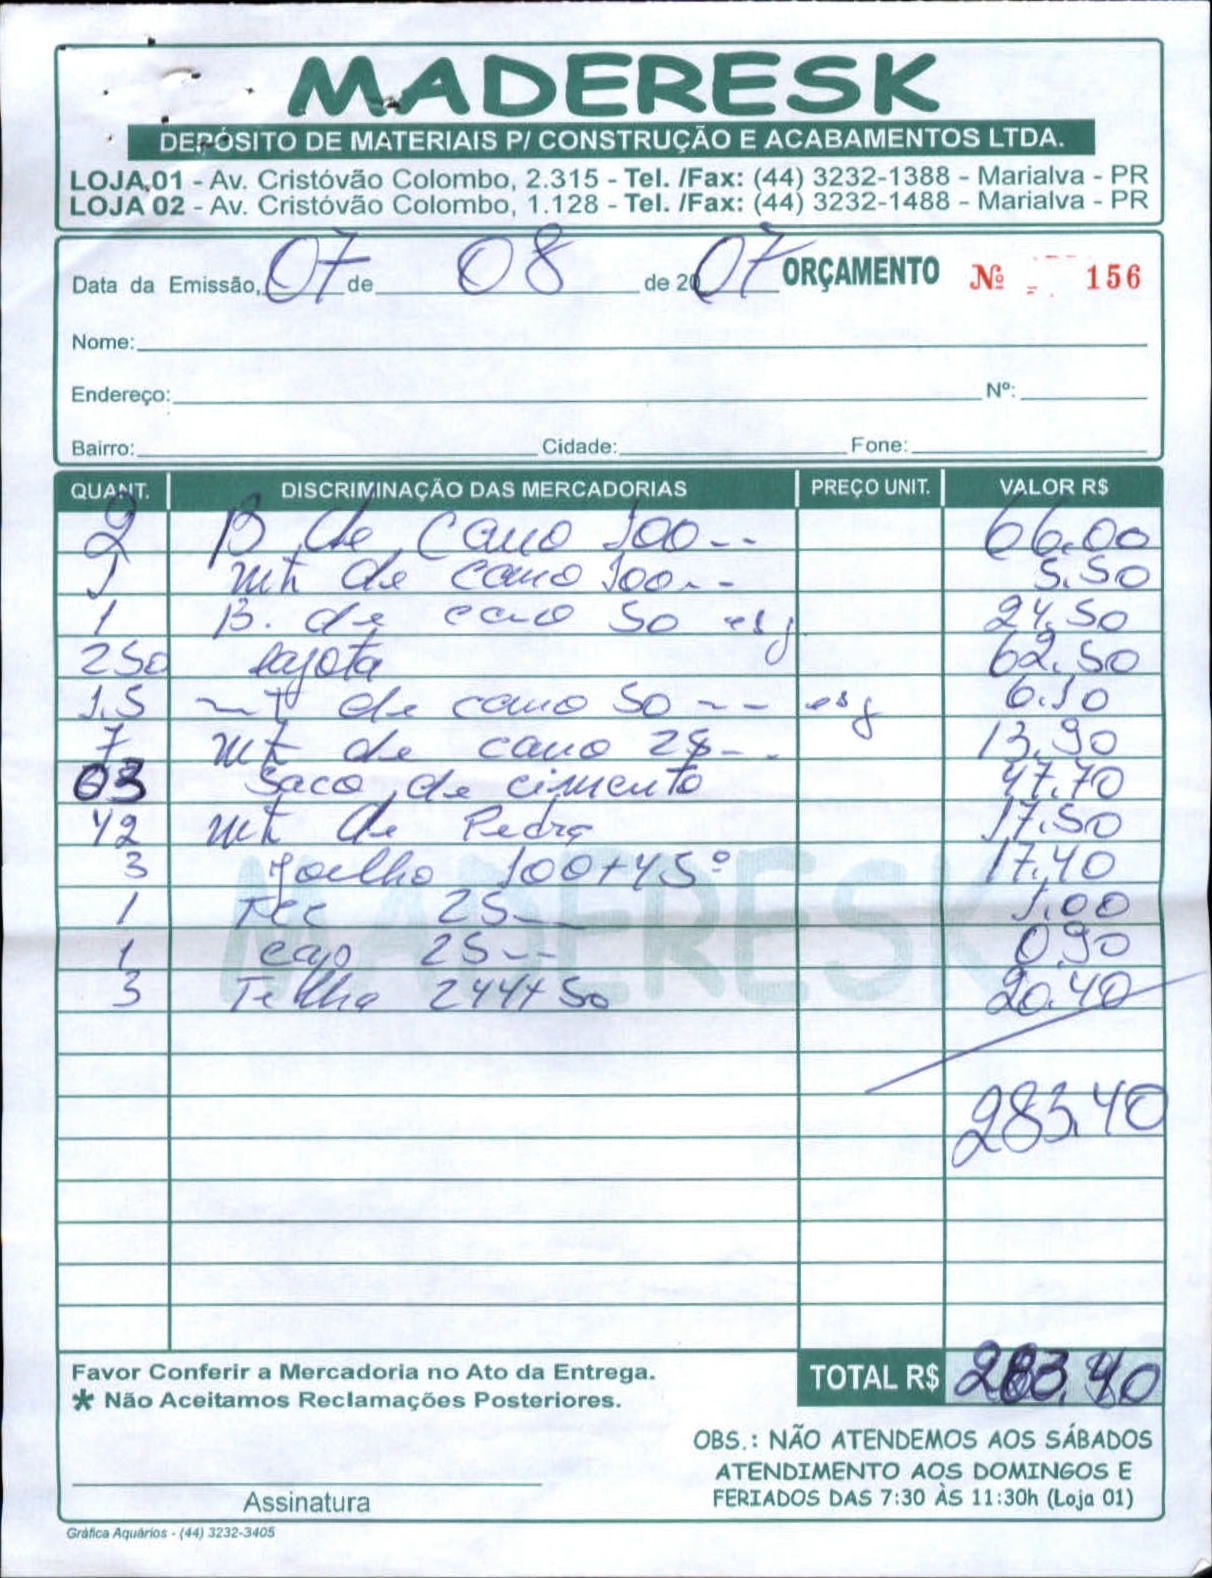 MADERESK
DEPÓSITO DE MATERIAIS P/ CONSTRUÇÃO E ACABAMENTOS LTDA.
LOJA 01 - Av. Cristóvão Colombo, 2.315 - Tel. /Fax: (44) 3232-1388 - Marialva - PR
LOJA 02 - Av. Cristóvão Colombo, 1.128 - Tel. /Fax: (44) 3232-1488 - Marialva - PR
Data da Emissão, 07 de 08 de 2007 ORÇAMENTO Nº 156
Nome:
Endereço: Nº:
Bairro: Cidade: Fone:
QUANT. DISCRIMINAÇÃO DAS MERCADORIAS PREÇO UNIT. VALOR R$
2 B de Cano 100-- 66,00
1 mt de cano 100-- 5.50
1 B. de cano 50 esg 24,50
250 lajota 62,50
1.5 mt de cano 50 -- esg 6.10
7 mt de cano 25-- 13,90
03 Saco de cimento 47,70
1/2 mt de Pedra 17.50
3 Joelho 100+45º 17,40
1 Tee 25-- 1,00
1 cap 25-- 0,90
3 Telha 244x50 20.40
283,40
MADERESK
Favor Conferir a Mercadoria no Ato da Entrega.
* Não Aceitamos Reclamações Posteriores.
TOTAL R$ 283,40
OBS.: NÃO ATENDEMOS AOS SÁBADOS
ATENDIMENTO AOS DOMINGOS E
FERIADOS DAS 7:30 ÀS 11:30h (Loja 01)
Assinatura
Gráfica Aquários - (44) 3232-3405